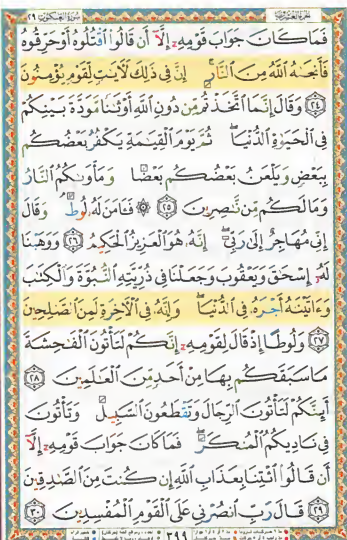 الجزء العشرون سورة العنكبوت ٢٩
فَمَا كَانَ جَوَابَ قَوْمِهِۦٓ إِلَّآ أَن قَالُوا۟ ٱقْتُلُوهُ أَوْ حَرِّقُوهُ
فَأَنجَىٰهُ ٱللَّهُ مِنَ ٱلنَّارِ ۚ إِنَّ فِى ذَٰلِكَ لَـَٔايَـٰتٍ لِّقَوْمٍ يُؤْمِنُونَ
٢٤ وَقَالَ إِنَّمَا ٱتَّخَذْتُم مِّن دُونِ ٱللَّهِ أَوْثَـٰنًا مَّوَدَّةَ بَيْنِكُمْ
فِى ٱلْحَيَوٰةِ ٱلدُّنْيَا ۖ ثُمَّ يَوْمَ ٱلْقِيَـٰمَةِ يَكْفُرُ بَعْضُكُم
بِبَعْضٍ وَيَلْعَنُ بَعْضُكُم بَعْضًا وَمَأْوَىٰكُمُ ٱلنَّارُ
وَمَا لَكُم مِّن نَّـٰصِرِينَ ٢٥ ۞ فَـَٔامَنَ لَهُۥ لُوطٌ ۘ وَقَالَ
إِنِّى مُهَاجِرٌ إِلَىٰ رَبِّىٓ ۖ إِنَّهُۥ هُوَ ٱلْعَزِيزُ ٱلْحَكِيمُ ٢٦ وَوَهَبْنَا
لَهُۥٓ إِسْحَـٰقَ وَيَعْقُوبَ وَجَعَلْنَا فِى ذُرِّيَّتِهِ ٱلنُّبُوَّةَ وَٱلْكِتَـٰبَ
وَءَاتَيْنَـٰهُ أَجْرَهُۥ فِى ٱلدُّنْيَا ۖ وَإِنَّهُۥ فِى ٱلْـَٔاخِرَةِ لَمِنَ ٱلصَّـٰلِحِينَ
٢٧ وَلُوطًا إِذْ قَالَ لِقَوْمِهِۦٓ إِنَّكُمْ لَتَأْتُونَ ٱلْفَـٰحِشَةَ
مَا سَبَقَكُم بِهَا مِنْ أَحَدٍ مِّنَ ٱلْعَـٰلَمِينَ ٢٨
أَئِنَّكُمْ لَتَأْتُونَ ٱلرِّجَالَ وَتَقْطَعُونَ ٱلسَّبِيلَ وَتَأْتُونَ
فِى نَادِيكُمُ ٱلْمُنكَرَ ۖ فَمَا كَانَ جَوَابَ قَوْمِهِۦٓ إِلَّآ
أَن قَالُوا۟ ٱئْتِنَا بِعَذَابِ ٱللَّهِ إِن كُنتَ مِنَ ٱلصَّـٰدِقِينَ
٢٩ قَالَ رَبِّ ٱنصُرْنِى عَلَى ٱلْقَوْمِ ٱلْمُفْسِدِينَ ٣٠
٣٩٩